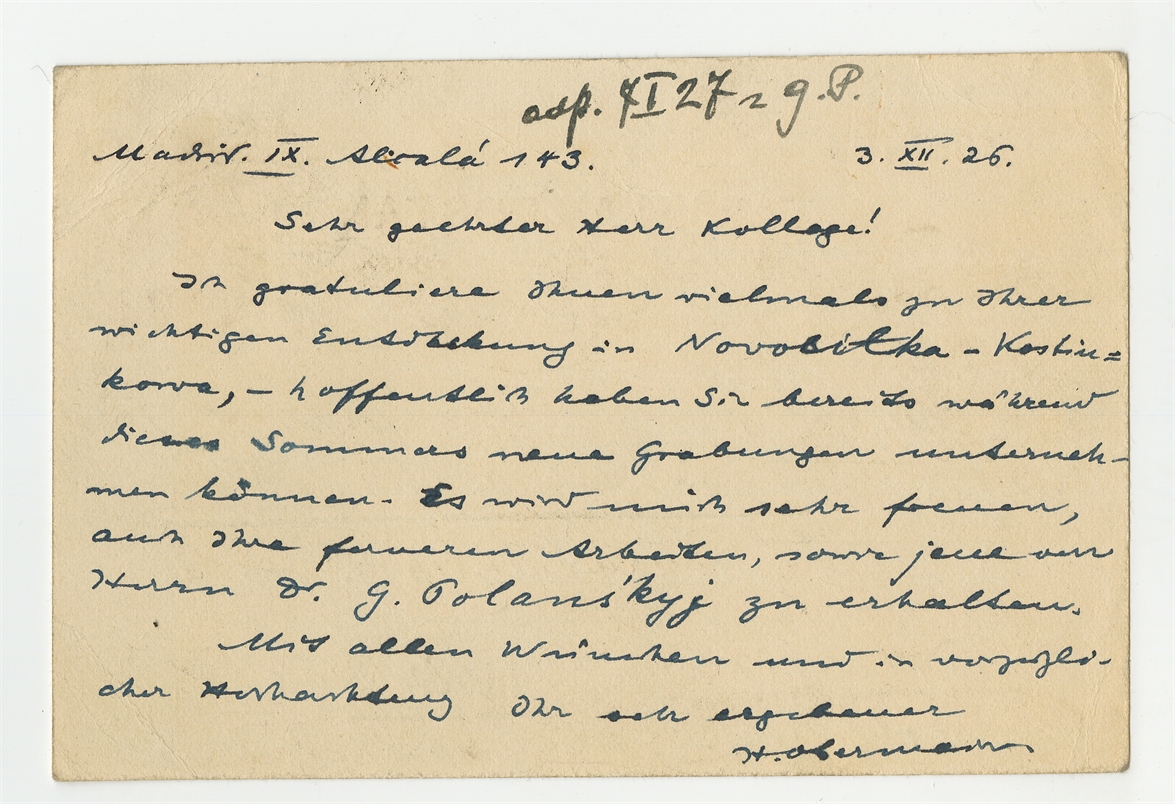 odp. XI 27 z g. P.
Madrid. IX. Alcalá 143. 3. XII. 26.
Sehr geehrter Herr Kollege!
Ich gratuliere Ihnen vielmals zu Ihrer
wichtigen Entdeckung in Novosilka - Kostiu=
kowa, - hoffentlich haben Sie bereits während
dieses Sommers neue Grabungen unterneh-
men können. Es wird mich sehr freuen,
auch Ihre ferneren Arbeiten, sowie jene von
Herrn Dr. G. Polanśkyj zu erhalten.
Mit allen Wünschen und in vorzügli-
cher Hochachtung Ihr sehr ergebener
H. Obermaier